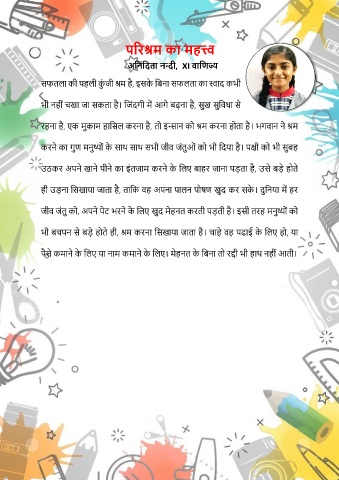 परिश्रम का महत्त्व
अनिंदिता नन्दी, XI वाणिज्य
सफतला की पहली कुंजी श्रम है, इसके बिना सफलता का स्वाद कभी
भी नहीं चखा जा सकता है। जिंदगी में आगे बढ़ना है, सुख सुविधा से
रहना है, एक मुकाम हासिल करना है, तो इन्सान को श्रम करना होता है। भगवान ने श्रम
करने का गुण मनुष्यों के साथ साथ सभी जीव जंतुओं को भी दिया है। पक्षी को भी सुबह
उठकर अपने खाने पीने का इंतजाम करने के लिए बाहर जाना पड़ता है, उसे बड़े होते
ही उड़ना सिखाया जाता है, ताकि वह अपना पालन पोषण खुद कर सके। दुनिया में हर
जीव जंतु को, अपने पेट भरने के लिए खुद मेहनत करती पड़ती है। इसी तरह मनुष्यों को
भी बचपन से बड़े होते ही, श्रम करना सिखाया जाता है। चाहे वह पढाई के लिए हो, या
पैसे कमाने के लिए या नाम कमाने के लिए। मेहनत के बिना तो रद्दी भी हाथ नहीं आती।